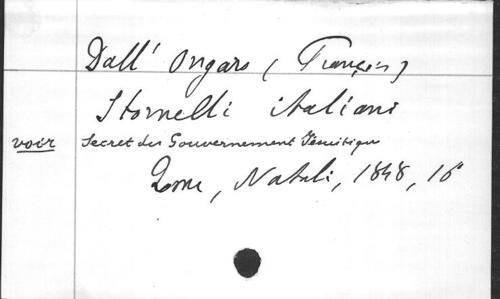 Dall' Ongaro (François)
Stornelli italiani
voir Secret du Gouvernement Jésuitique
Rome, Natali, 1848, 16°